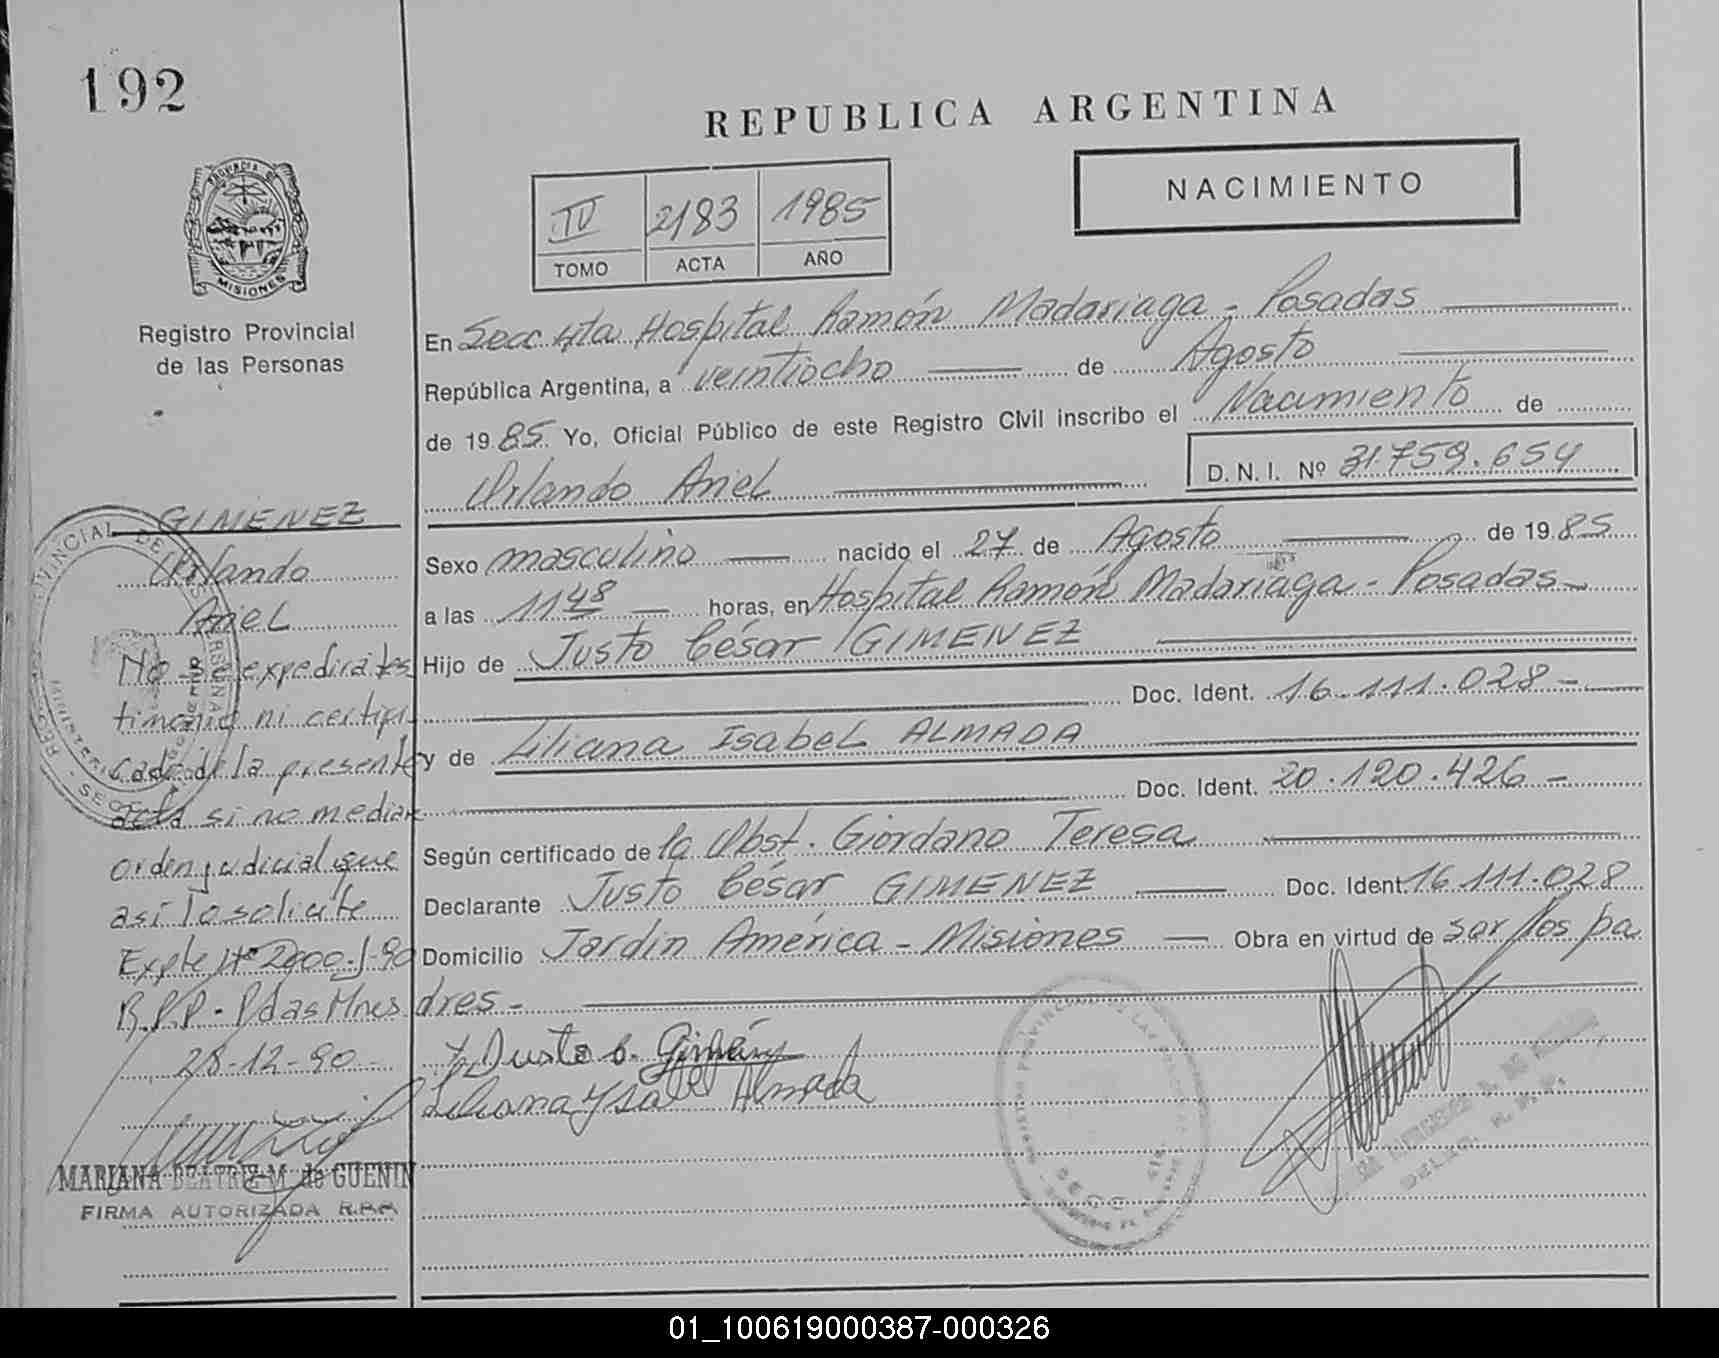 192
REPUBLICA ARGENTINA
NACIMIENTO
IV 2183 1985
TOMO ACTA AÑO
PROVINCIA DE
MISIONES
Registro Provincial
de las Personas
En Secc 4ta Hospital Ramón Madariaga - Posadas
República Argentina, a veintiocho de Agosto
de 1985. Yo, Oficial Público de este Registro Civil inscribo el Nacimiento de
Orlando Ariel
D. N. I. Nº 31.759.654
Sexo masculino nacido el 27 de Agosto de 1985
a las 11 48 horas, en Hospital Ramón Madariaga - Posadas -
Hijo de Justo César GIMENEZ
Doc. Ident. 16.111.028 -
y de Liliana Isabel ALMADA
Doc. Ident. 20.120.426 -
Según certificado de la Obst. Giordano Teresa
Declarante Justo César GIMENEZ Doc. Ident. 16.111.028
Domicilio Jardín América - Misiones Obra en virtud de ser los pa
dres -
Justo C.
Liliana Ysabel Almada
GIMENEZ
Orlando
Ariel
No se expedirá tes
timonio ni certifi
cado de la presente
acta si no mediare
orden judicial que
así lo solicite
Expte Nº 2800-J-90
R.P.P. - Pdas Mnes
28-12-90 -
MARIANA BEATRIZ M. de GUENIN
FIRMA AUTORIZADA R.P.P.
01_100619000387-000326